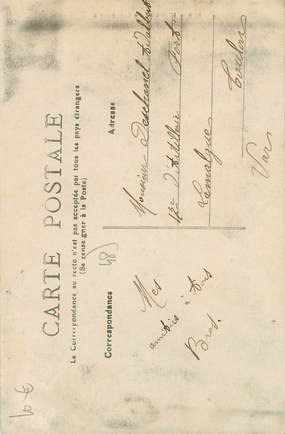 CARTE POSTALE
La Correspondance au recto n'est pas acceptée par tous les pays étrangers
(Se renseigner à la Poste)
Correspondance
Adresse
Mes
amitiés à tous
Monsieur Deschanel
d'Artillerie Fort
Lamalgue
Toulon
Var